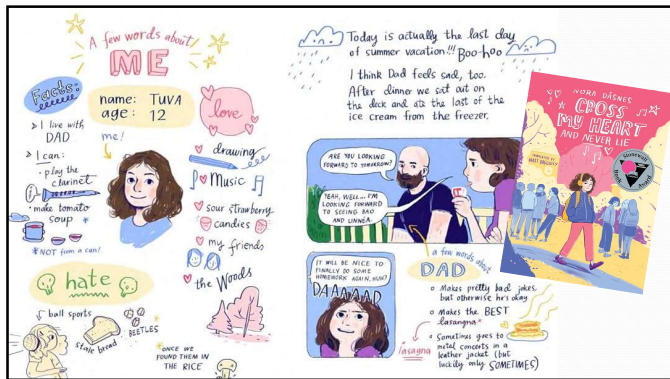 A few words about
ME
Facts:
name: TUVA
age: 12
me!
I live with
DAD
I can:
• play the
clarinet
• make tomato
soup *
*NOT from a can!
love
drawing
Music
sour strawberry
candies
my friends
the Woods
hate
ball sports
stale bread
BEETLES
*ONCE WE
FOUND THEM IN
THE RICE
Today is actually the last day
of summer vacation!!! Boo-hoo
I think Dad feels sad, too.
After dinner we sat out on
the deck and ate the last of the
ice cream from the freezer.
ARE YOU LOOKING
FORWARD TO TOMORROW?
YEAH, WELL... I'M
LOOKING FORWARD
TO SEEING BAO
AND LINNÉA.
IT WILL BE NICE TO
FINALLY DO SOME
HOMEWORK AGAIN, HUH?
DAAAAAD
a few words about
DAD
o Makes pretty bad jokes,
but otherwise he's okay
o Makes the BEST
lasangna*
o Sometimes goes to
metal concerts in a
leather jacket (but
luckily only SOMETIMES)
lasagna
NORA DÅSNES
CROSS
MY HEART
AND NEVER LIE
TRANSLATED BY MATT BAGGULEY
Stonewall
Book
Award